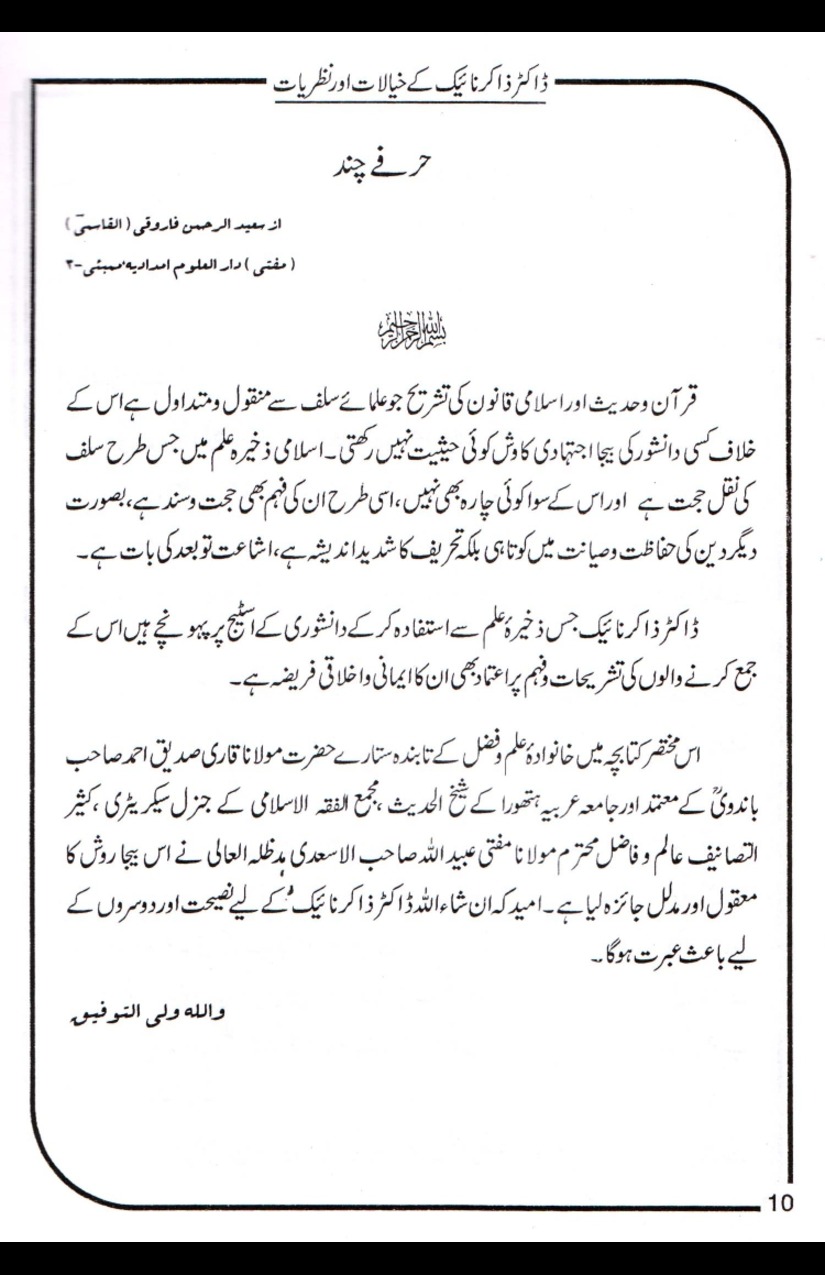 ڈاکٹر ذاکر نائیک کے خیالات اور نظریات
حرفے چند
از سعید الرحمن فاروقی (القاسمیؔ)
(مفتی) دار العلوم امدادیه، ممبئی-۳
بسم الله الرحمن الرحيم
قرآن وحدیث اور اسلامی قانون کی تشریح جو علمائے سلف سے منقول ومتداول ہے اس کے
خلاف کسی دانشور کی بیجا اجتہادی کاوش کوئی حیثیت نہیں رکھتی۔ اسلامی ذخیرہ علم میں جس طرح سلف
کی نقل حجت ہے اور اس کے سوا کوئی چارہ بھی نہیں، اسی طرح ان کی فہم بھی حجت وسند ہے، بصورت
دیگر دین کی حفاظت وصیانت میں کوتاہی بلکہ تحریف کا شدید اندیشہ ہے، اشاعت تو بعد کی بات ہے۔
ڈاکٹر ذاکر نائیک جس ذخیرۂ علم سے استفادہ کر کے دانشوری کے اسٹیج پر پہونچے ہیں اس کے
جمع کرنے والوں کی تشریحات وفہم پر اعتماد بھی ان کا ایمانی واخلاقی فریضہ ہے۔
اس مختصر کتابچہ میں خانوادۂ علم وفضل کے تابندہ ستارے حضرت مولانا قاری صدیق احمد صاحب
باندویؒ کے معتمد اور جامعہ عربیہ ہتھورا کے شیخ الحدیث، مجمع الفقہ الاسلامی کے جنرل سیکریٹری، کثیر
التصانیف عالم و فاضل محترم مولانا مفتی عبید اللہ صاحب الاسعدی مدظلہ العالی نے اس بیجا روش کا
معقول اور مدلل جائزہ لیا ہے۔ امید کہ ان شاء اللہ ڈاکٹر ذاکر نائیک کے لیے نصیحت اور دوسروں کے
لیے باعث عبرت ہوگا۔
والله ولی التوفیق
10